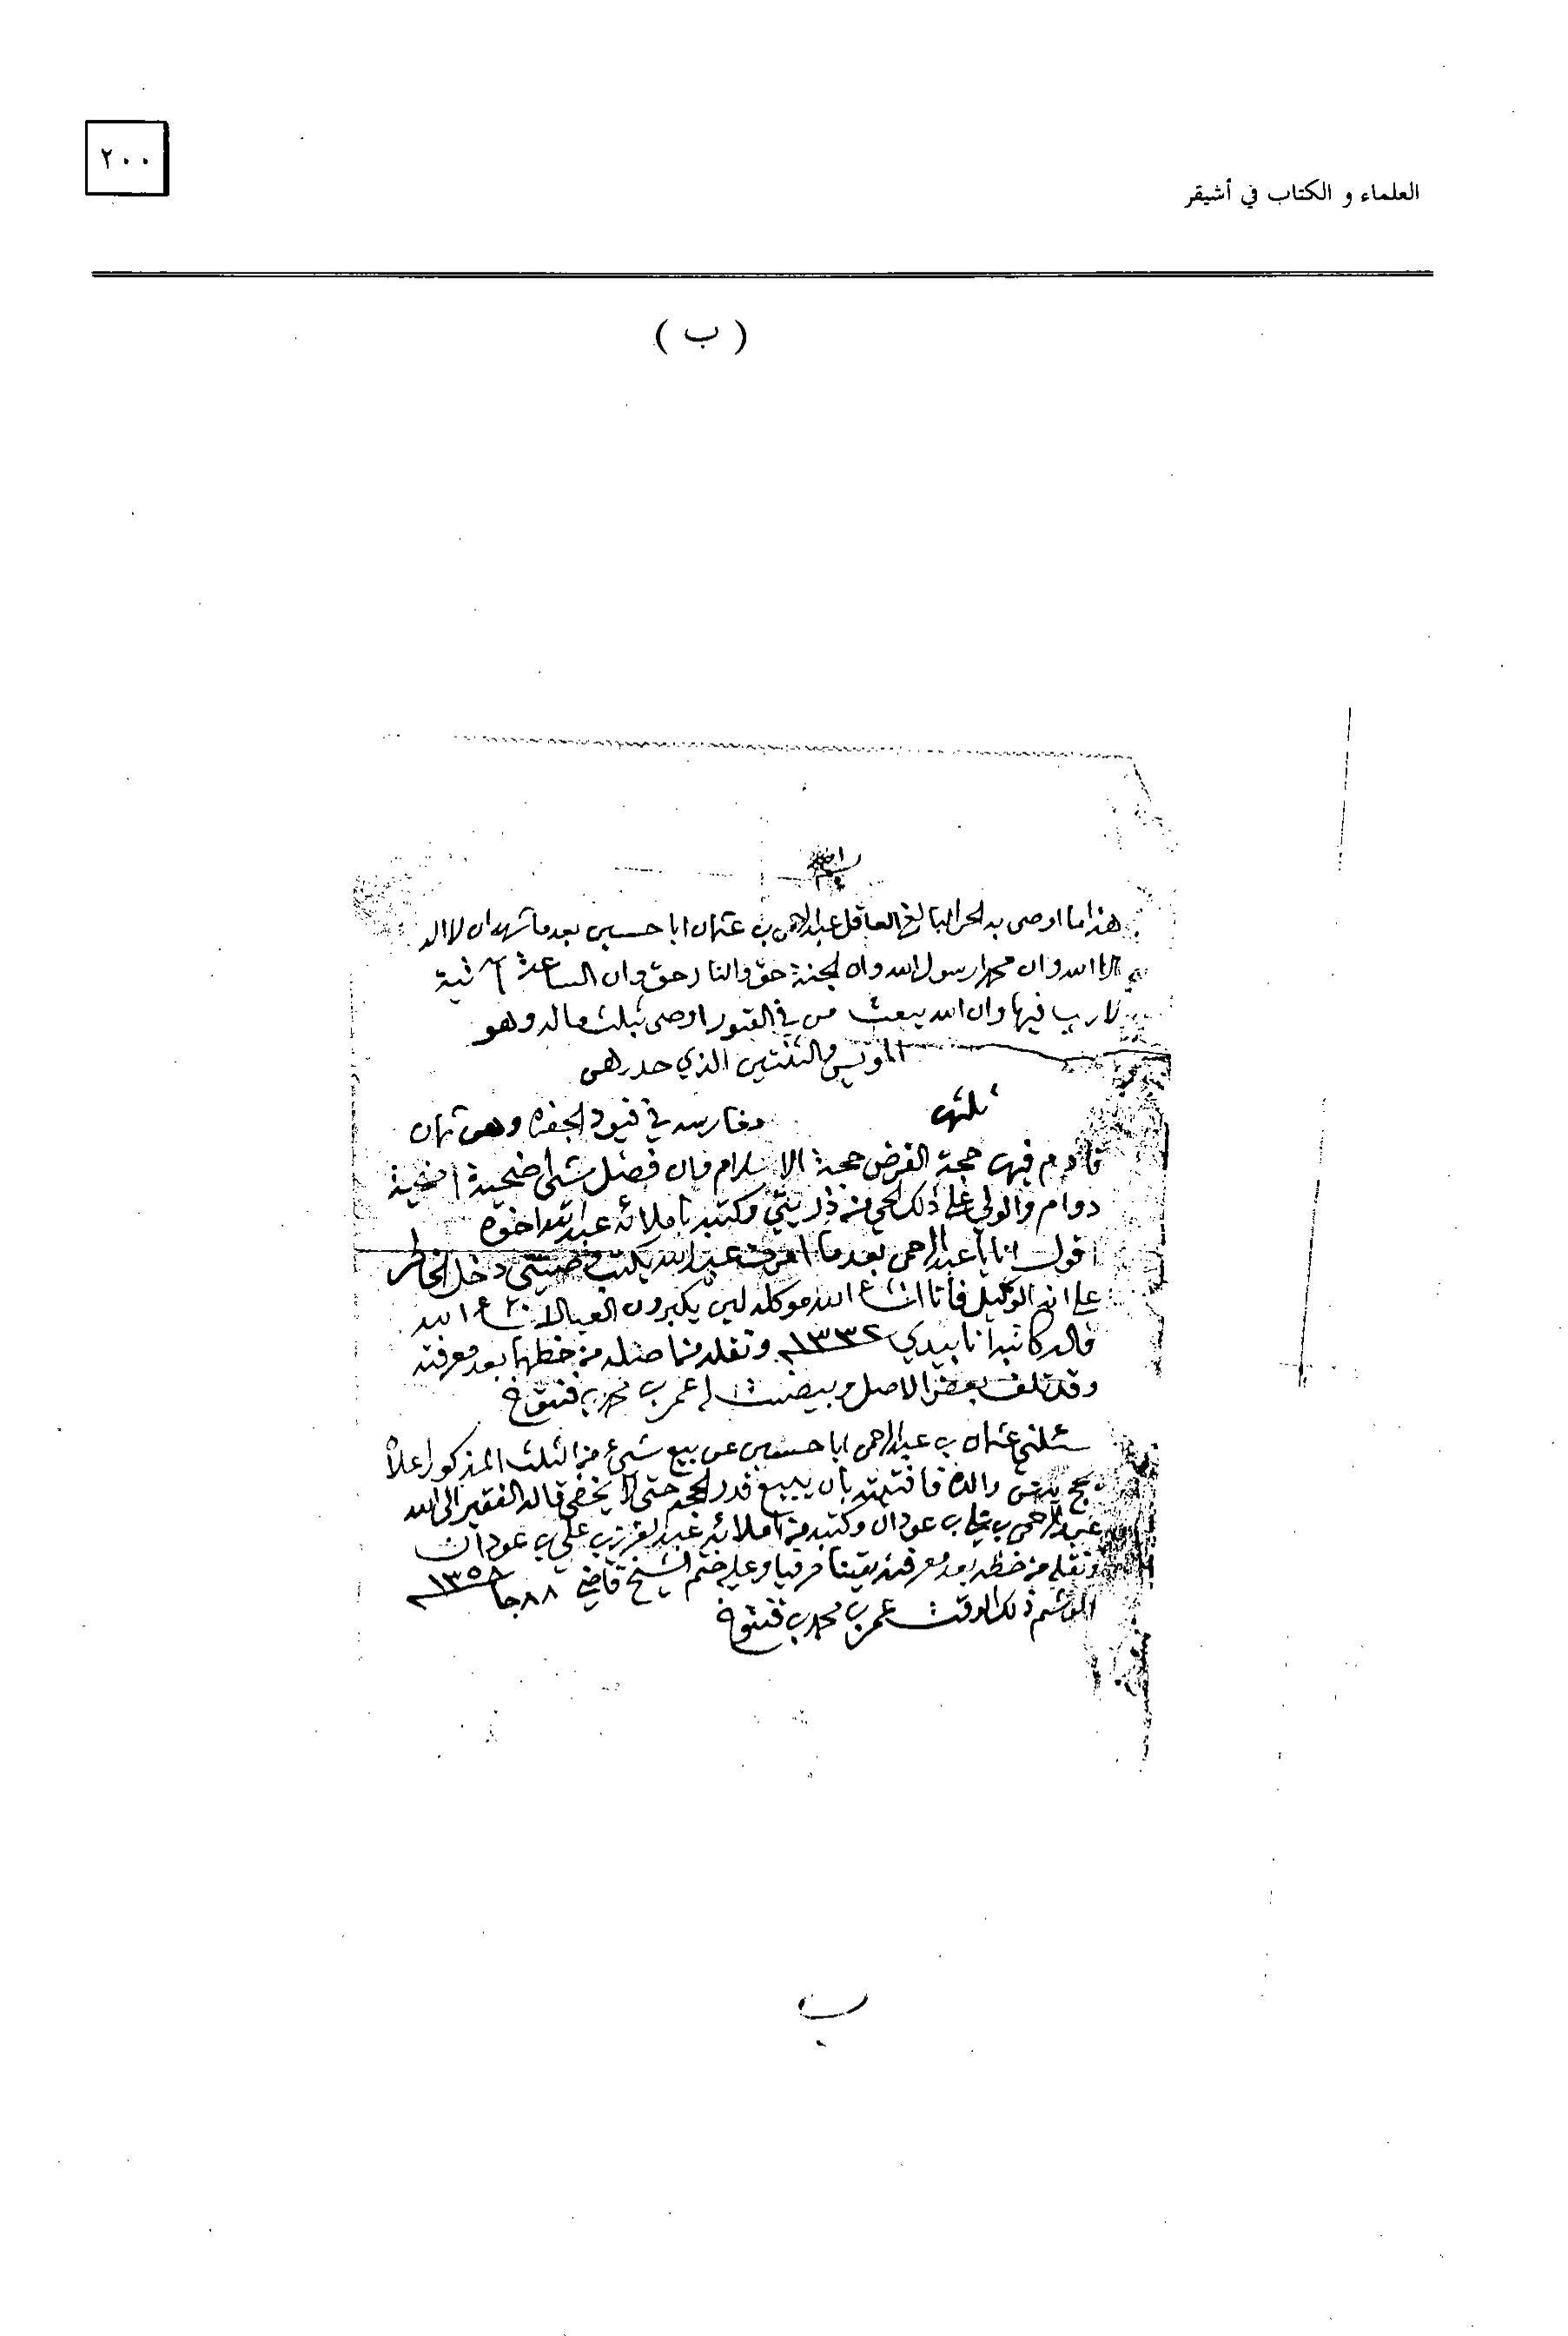 ٢٠٠
العلماء و الكتاب في أشيقر
( ب )
هذا ما اوصى به الحر البالغ العاقل عبدالرحمن بن عثمان ابا حسين بعد ما شهد ان لا اله
الا الله وان محمدا رسول الله وان الجنة حق والنار حق وان الساعة آتية
لا ريب فيها وان الله يبعث من في القبور اوصى بثلث ماله وهو
الذي حدرهن
ثلثهن
ومغارسه في قيود الجفره وهن ثمان
قادم فيهن حجة الفرض حجة الاسلام فان فضل شي اضحية اضحية
دوام والولي على ذلك الحي من ذريتي وكتبه باملائه عبدالله اخوه
اقول انا يا عبدالرحمن بعد ما اعرفت عبدالله يكتب وصيتي دخل الخاطر
على انه الوكيل فأنا انشاء الله موكله لين يكبرون العيال انشاء الله
قاله كاتبه انا بيدي ١٣٣٢ ونقله من اصله من خطهما بعد معرفته
وقد تلف بعض الاصل وبيضت له عمر بن محمد بن فنتوخ
سئلني عثمان بن عبدالرحمن ابا حسين عن بيع شيء من الثلث المذكور اعلاه
والده فافتيته بأن يبيع قدر الحجه حتى لا يخفى قاله الفقير الى الله
عبدالرحمن بن علي بن عودان وكتبه من املائه عبدالعزيز بن علي بن عودان
ونقله من خطه بعد معرفته يقينا حرفيا وعليه ختم الشيخ قاضي ٨٨ جا ١٣٥٨
الوشم ذلك الوقت عمر بن محمد بن فنتوخ
ب